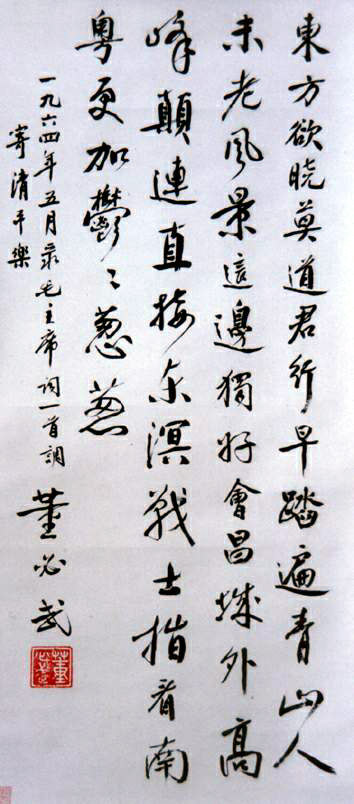 東方欲晓莫道君行早踏遍青山人
未老風景這邊獨好會昌城外高
峰顛連直接东溟戰士指看南
粵更加鬱〻葱葱
一九六四年五月录毛主席词一首調
寄清平樂
董必武